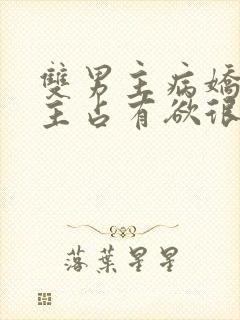 雙男主病嬌
主占有欲很
落葉星星